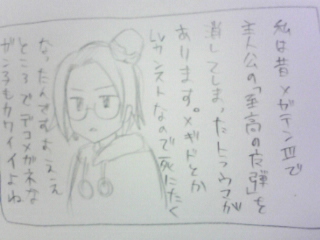 私は昔メガテンⅢで
主人公の「至高の魔弾」を
消してしまったトラウマが
あります。メギドとか
LVカンストなので死にたく
なったんですよ、ええ
ところでデコメガネな
がらもカワイイよね